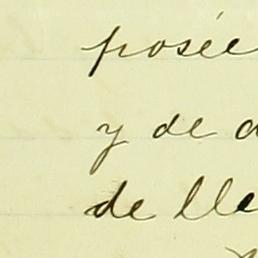 posée
y de
de lle